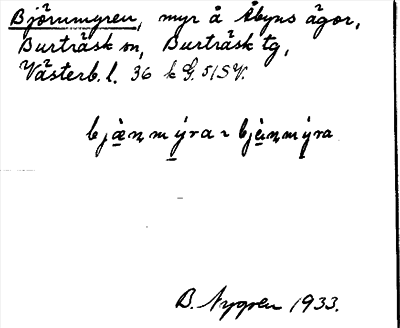 Björnmyren, myr å Åbyns ägor,
Burträsk sn, Burträsk tg,
Västerb. l. 36 k G. 5/SV.
bjæ̀nmýra ~ bjànmýra
B. Nygren 1933.